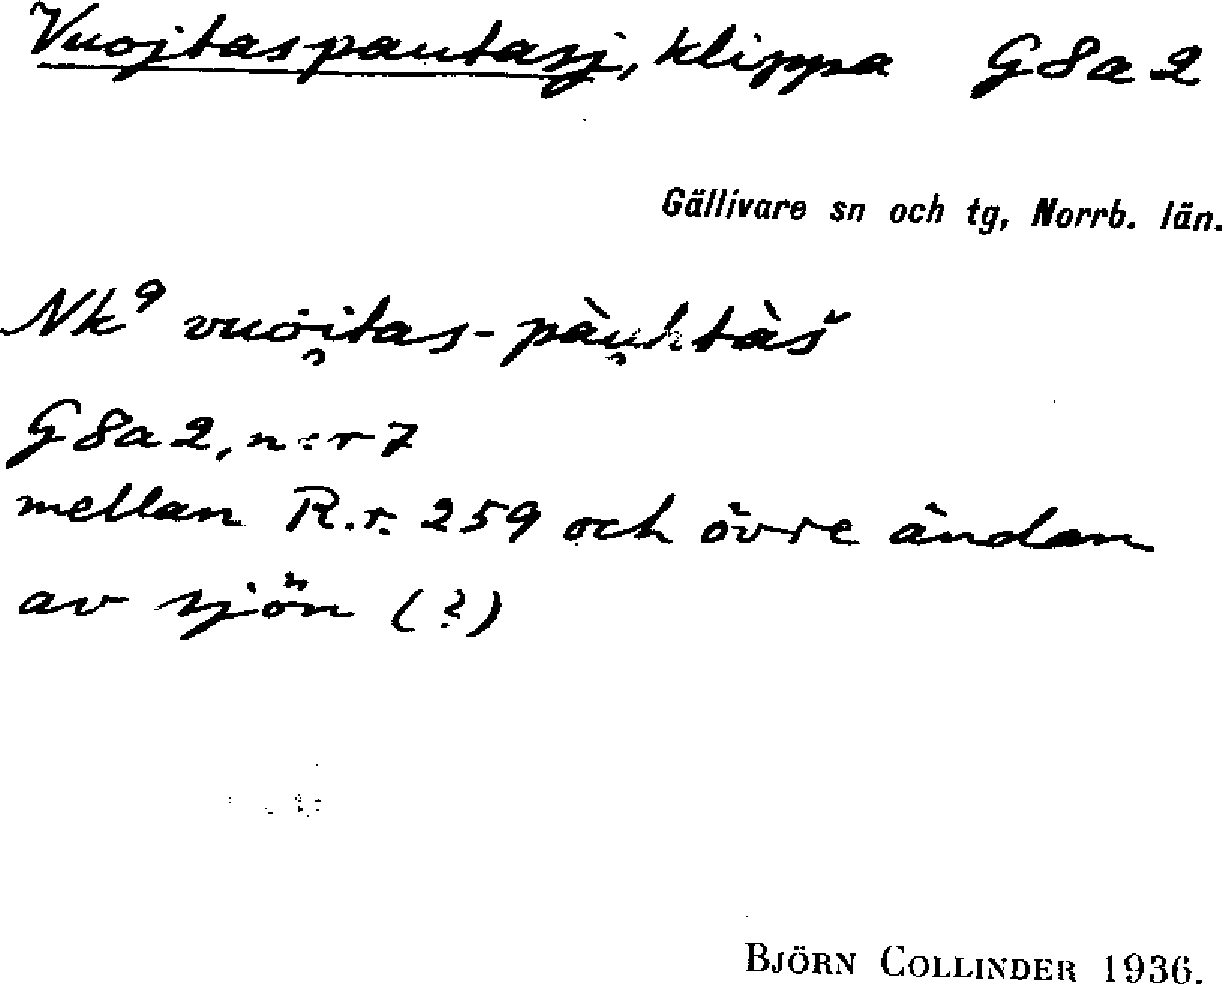 Vuojtaspautasj, klippa G8a2
Gällivare sn och tg, Norrb. län.
Nk⁹ vuoi̯tas-pàu̯htàš
G8a2, n:r 7
mellan R.r. 259 och övre ändan
av sjön (?)
BJÖRN COLLINDER 1936.